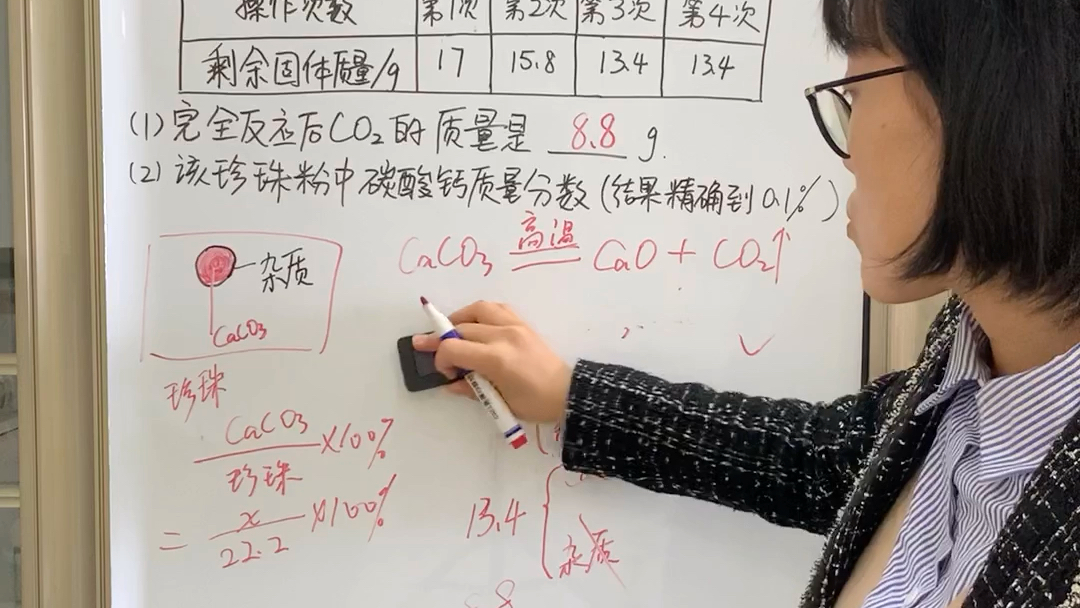 操作次数 第1次 第2次 第3次 第4次
剩余固体质量/g 17 15.8 13.4 13.4
(1)完全反应后CO₂的质量是 8.8 g.
(2)该珍珠粉中碳酸钙质量分数(结果精确到0.1%)
CaCO₃ 高温 CaO + CO₂↑
杂质
CaCO₃
珍珠
CaCO₃
×100%
珍珠
= x
×100%
22.2
13.4
杂质